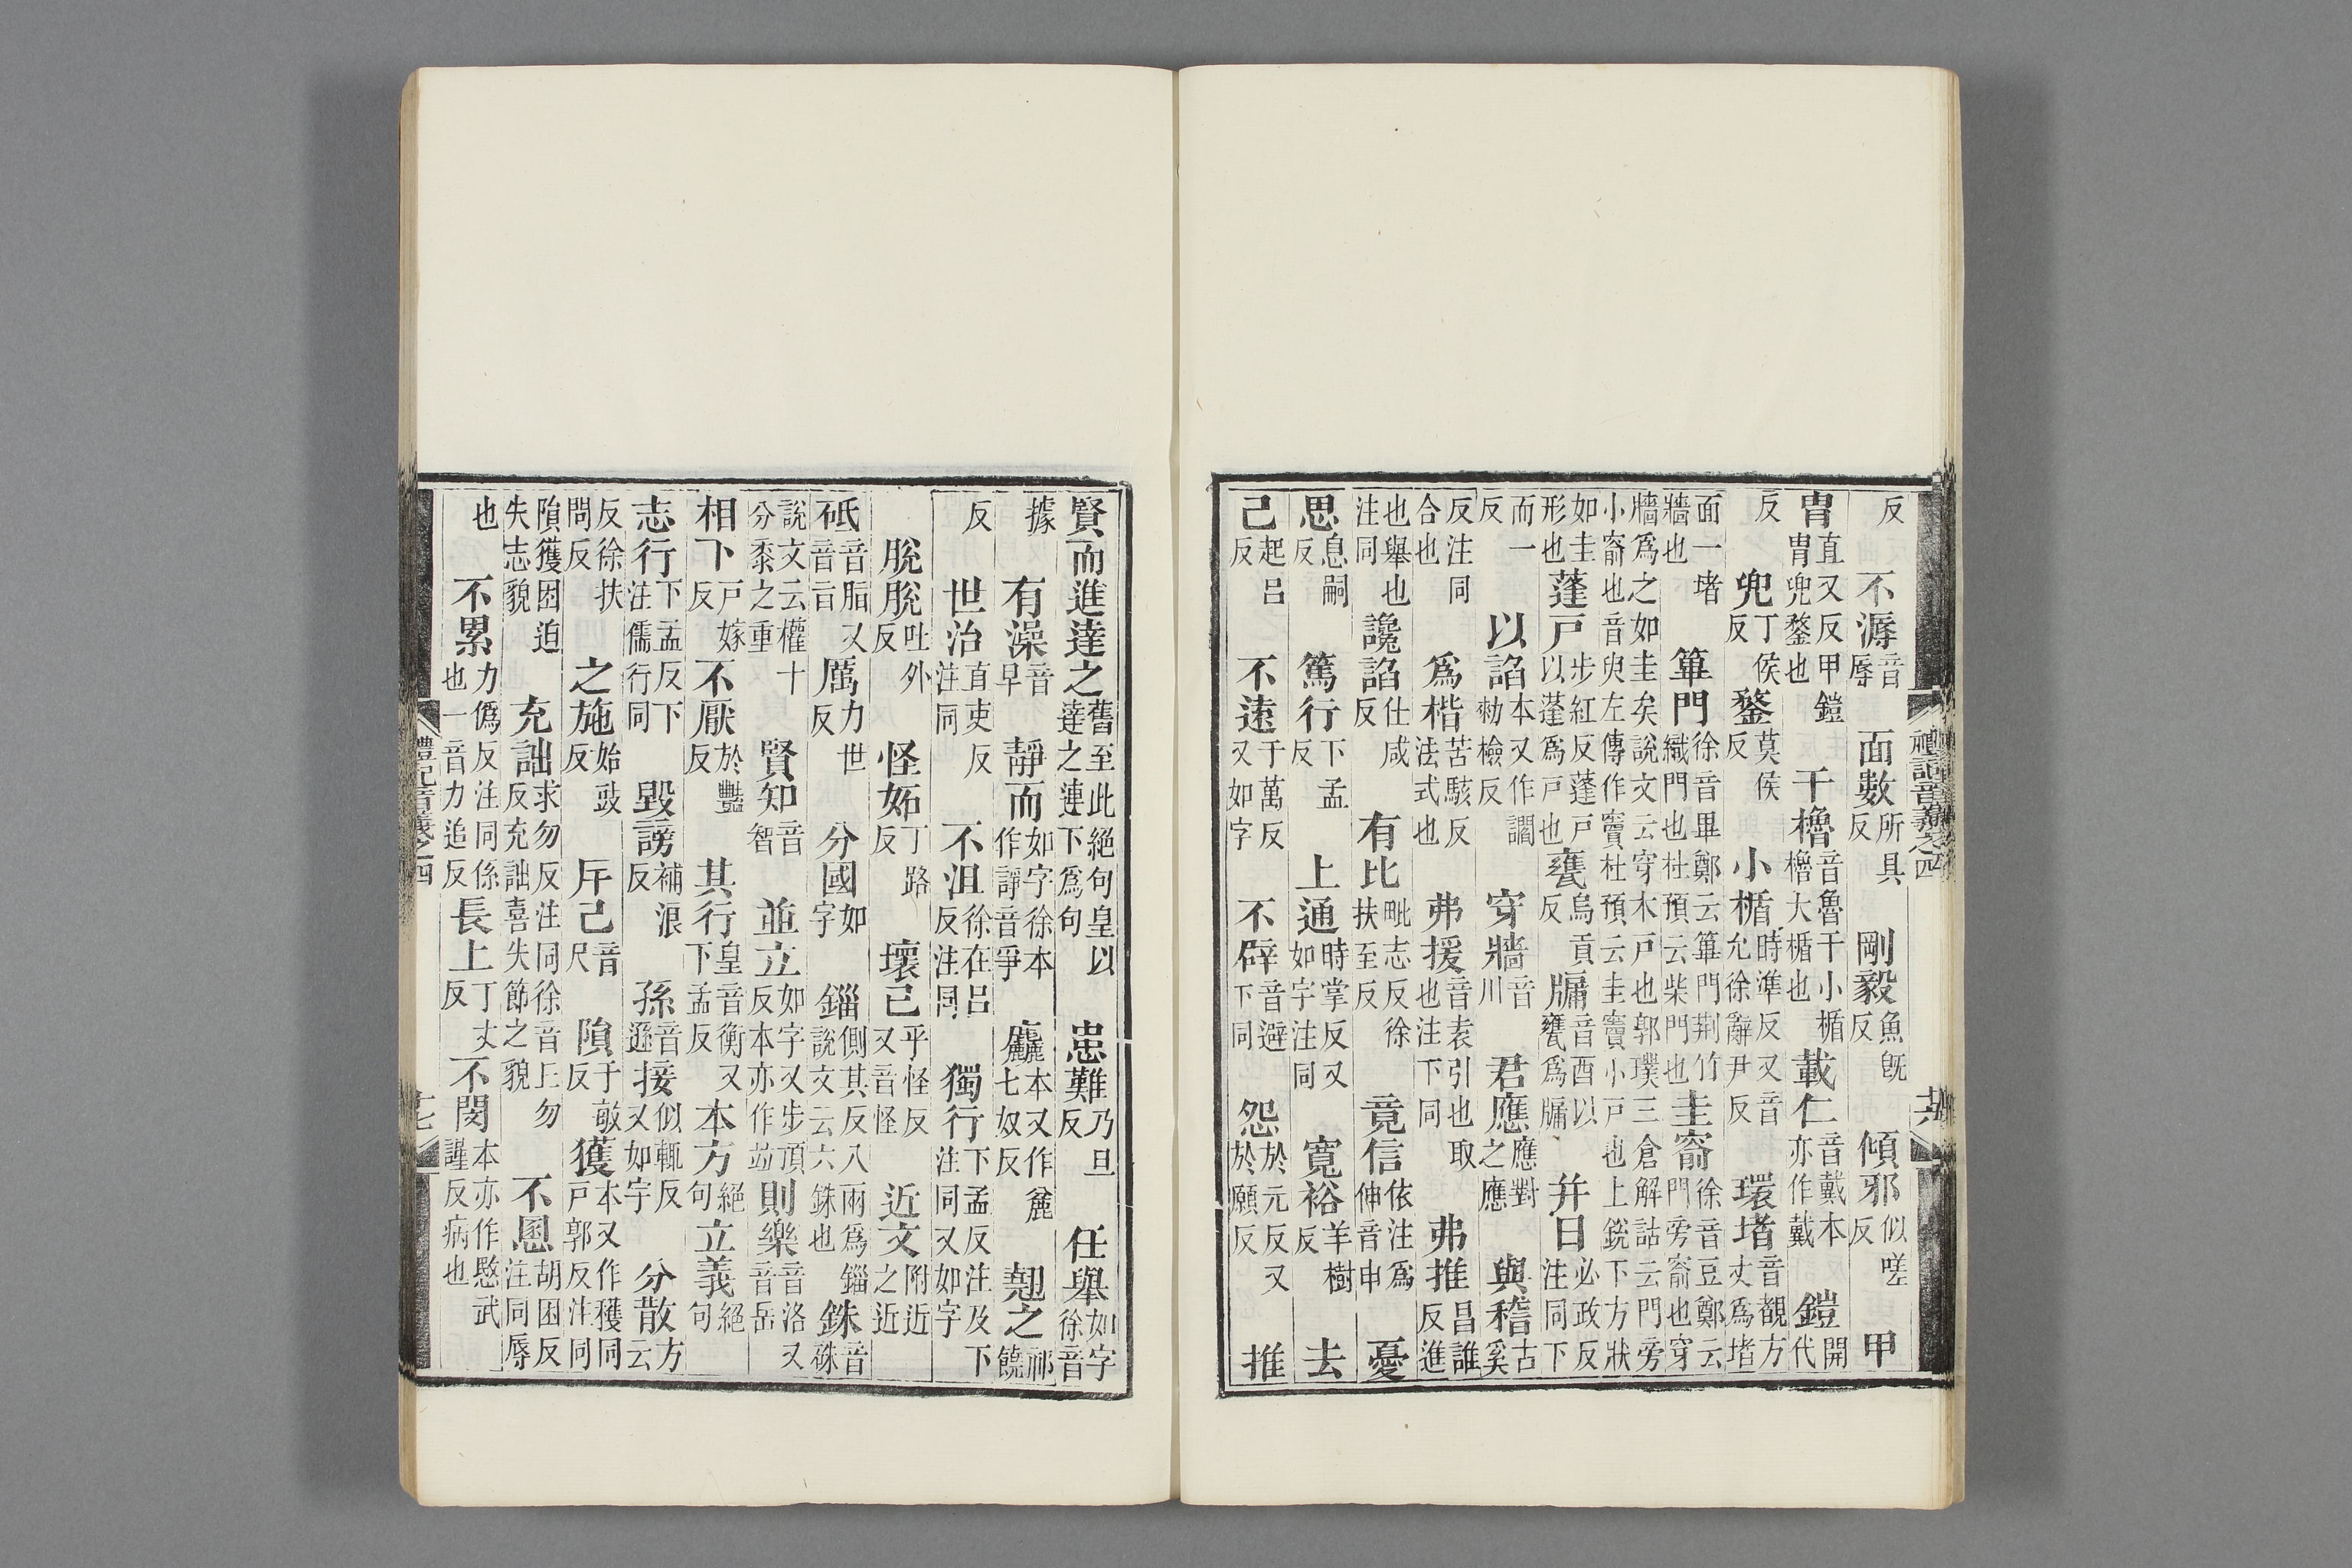 反　不溽音辱　面數所具反　剛毅魚旣反　傾邪似嗟反　甲
胄直又反甲鎧胄兜鍪也　干櫓音魯干小楯櫓大楯也　載仁音戴本亦作戴　鎧開代
反　兜丁侯反　鍪莫侯反　小楯時準反又音允徐辭尹反　環堵音觀方丈爲堵
面一堵牆也　篳門徐音畢鄭云篳門荆竹織門也杜預云柴門也　圭窬徐音豆鄭云門旁窬也穿
牆爲之如圭矣說文云穿木戸也郭璞三倉解詁云門旁小窬也音臾左傳作竇杜預云圭竇小戸也上銳下方狀
如圭形也　蓬戸步紅反蓬戸以蓬爲戸也　甕烏貢反　牖音酉以甕爲牖　幷日必政反注同下
而一反　以諂本又作讇勑檢反　穿牆音川　君應應對之應　與稽古奚
反注同合也　爲楷苦駭反法式也　弗援音袁引也取也注下同　弗推昌誰反進
也舉也注同　讒諂仕咸反　有比毗志反徐扶至反　竟信依注爲伸音申　憂
思息嗣反　篤行下孟反　上通時掌反又如字注同　寬裕羊樹反　去
己起呂反　不遠于萬反又如字　不辟音避下同　怨於元反又於願反　推
禮記音義之四　共
賢而進達之舊至此絕句皇以達之連下爲句　忠難乃旦反　任舉如字徐音
據　有澡音早　靜而如字徐本作諍音爭　麤本又作麄七奴反　翹之祁饒
反　世治直吏反注同　不沮徐在呂反注同　獨行下孟反注及下注同又如字
脫脫吐外反　怪妬丁路反　壞己乎怪反又音怪　近文附近之近
砥音脂又音旨　厲力世反　分國如字　錙側其反八兩爲錙說文云六銖也　銖音殊
說文云權十分黍之重　賢知音智　並立如字又步頂反本亦作竝　則樂音洛又音岳
相下戸嫁反　不厭於豔反　其行皇音衡又下孟反　本方絕句　立義絕句
志行下孟反下注儒行同　毀謗補浪反　孫音遜　接似輒反又如字　分散方云
反徐扶問反　之施始豉反　斥己音尺　隕于敏反　獲本又作穫同戸郭反注同
隕獲困迫失志貌　充詘求勿反注同徐音丘勿反充詘喜失節之貌　不慁胡困反注同辱
也　不累力僞反注同係也一音力追反　長上丁丈反　不閔本亦作愍武謹反病也
禮記音義之四